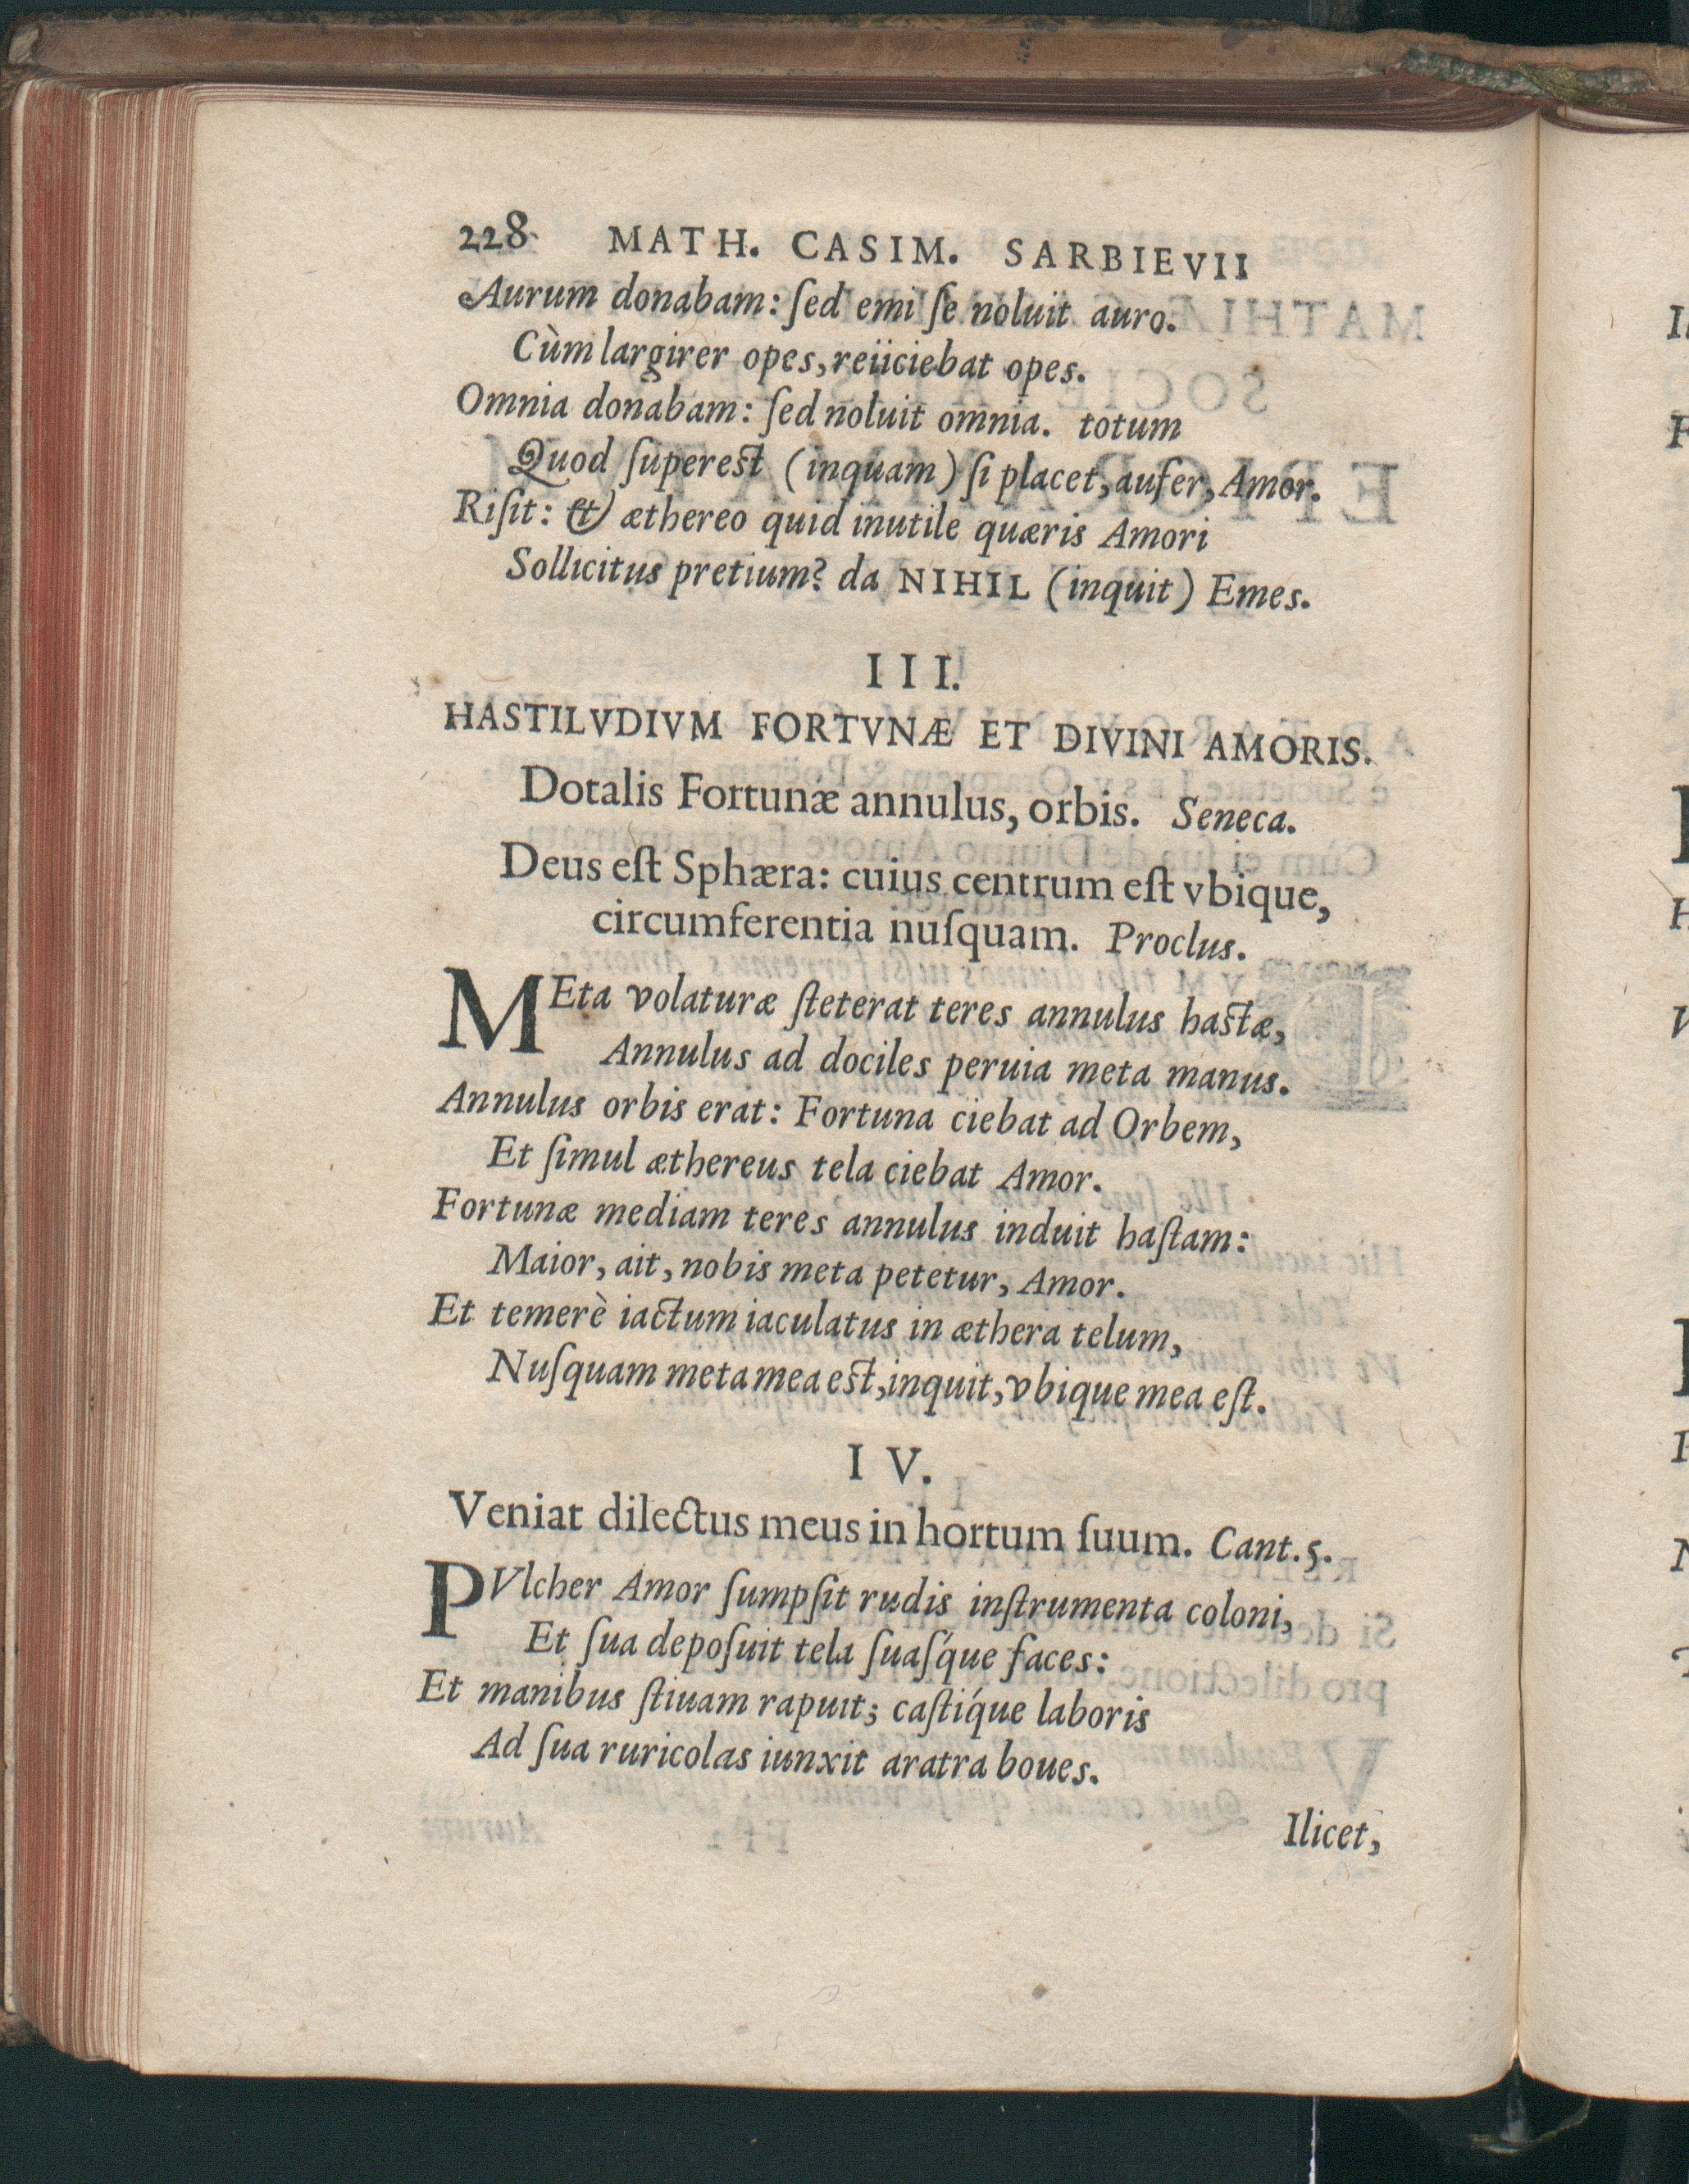 228 MATH. CASIM. SARBIEVII
Aurum donabam: ſed emi ſe noluit auro.
Cùm largirer opes, reiiciebat opes.
Omnia donabam: ſed noluit omnia. totum
Quod ſupereſt (inquam) ſi placet, aufer, Amor.
Riſit: & æthereo quid inutile quæris Amori
Sollicitus pretium? da NIHIL (inquit) Emes.
III.
HASTILVDIVM FORTVNÆ ET DIVINI AMORIS.
Dotalis Fortunæ annulus, orbis. Seneca.
Deus eſt Sphæra: cuius centrum eſt vbique,
circumferentia nuſquam. Proclus.
MEta volaturæ ſteterat teres annulus haſtæ,
Annulus ad dociles peruia meta manus.
Annulus orbis erat: Fortuna ciebat ad Orbem,
Et ſimul æthereus tela ciebat Amor.
Fortunæ mediam teres annulus induit haſtam:
Maior, ait, nobis meta petetur, Amor.
Et temerè iactum iaculatus in æthera telum,
Nuſquam meta mea eſt, inquit, vbique mea eſt.
IV.
Veniat dilectus meus in hortum ſuum. Cant. 5.
PVlcher Amor ſumpſit rudis inſtrumenta coloni,
Et ſua depoſuit tela ſuaſq́ue faces:
Et manibus ſtiuam rapuit; caſtiq́ue laboris
Ad ſua ruricolas iunxit aratra boues.
Ilicet,